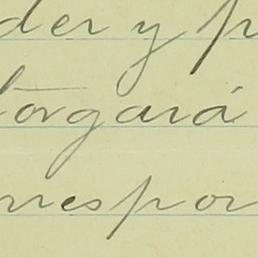 der y p
torgará
rrespon